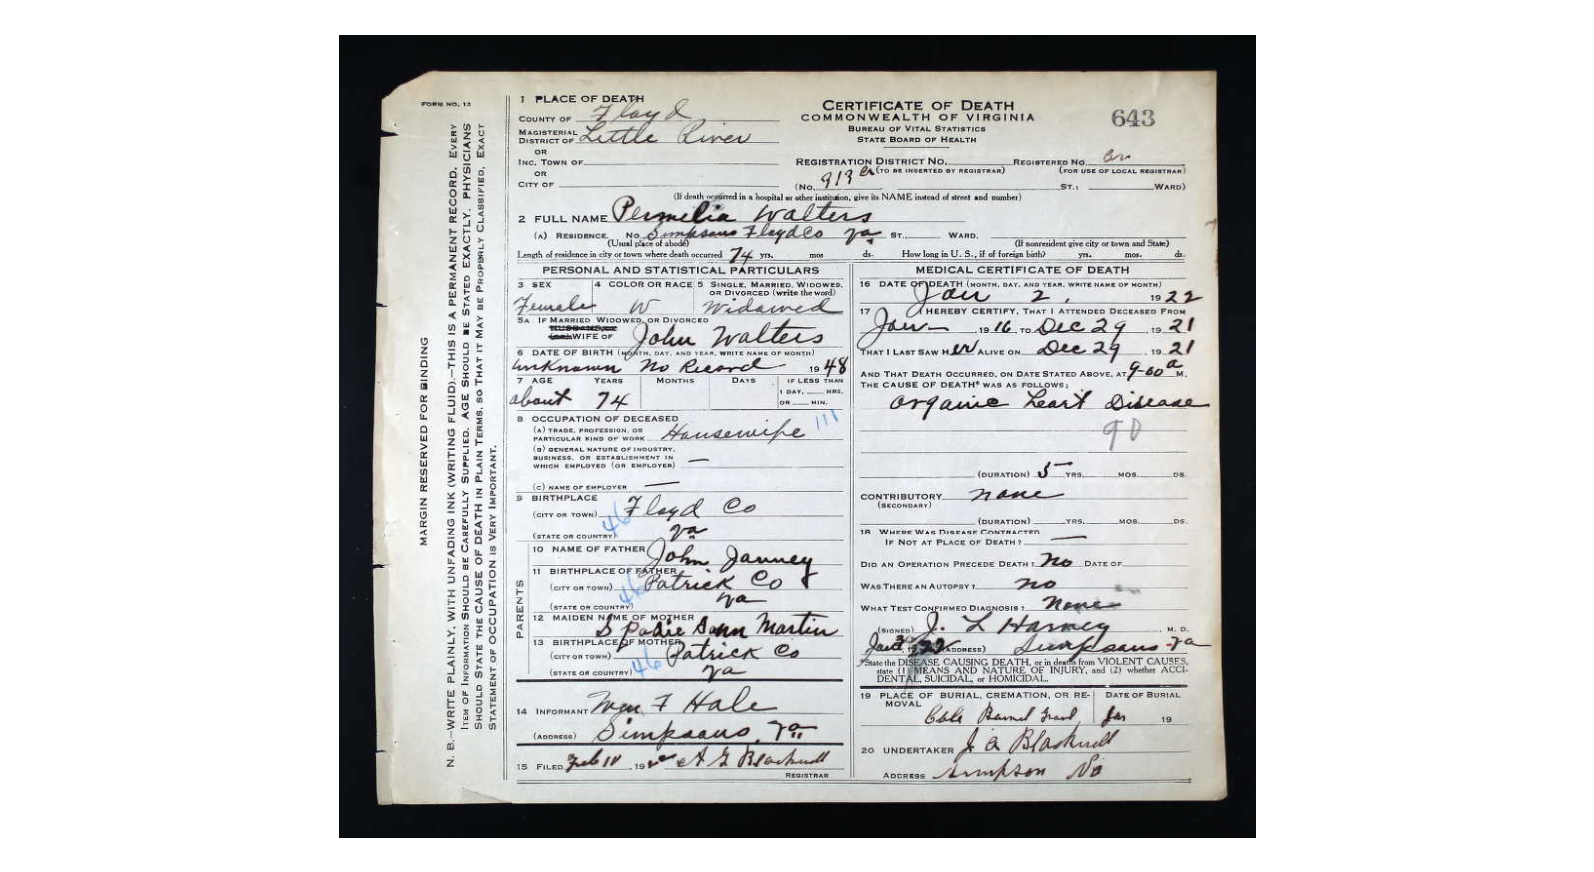 FORM NO. 12
MARGIN RESERVED FOR BINDING
N. B.—WRITE PLAINLY, WITH UNFADING INK (WRITING FLUID).—THIS IS A PERMANENT RECORD. EVERY
ITEM OF INFORMATION SHOULD BE CAREFULLY SUPPLIED. AGE SHOULD BE STATED EXACTLY. PHYSICIANS
SHOULD STATE THE CAUSE OF DEATH IN PLAIN TERMS, SO THAT IT MAY BE PROPERLY CLASSIFIED. EXACT
STATEMENT OF OCCUPATION IS VERY IMPORTANT.
1 PLACE OF DEATH
COUNTY OF Floyd
MAGISTERIAL
DISTRICT OF Little River
OR
INC. TOWN OF
OR
CITY OF
CERTIFICATE OF DEATH
COMMONWEALTH OF VIRGINIA
BUREAU OF VITAL STATISTICS
STATE BOARD OF HEALTH
643
REGISTRATION DISTRICT NO. REGISTERED NO.
(TO BE INSERTED BY REGISTRAR) (FOR USE OF LOCAL REGISTRAR)
(NO. ST.; WARD)
(If death occurred in a hospital or other institution, give its NAME instead of street and number)
2 FULL NAME Permelia Walters
(A) RESIDENCE. NO. Simpsons Floyd Co Va ST., WARD.
(Usual place of abode) (If nonresident give city or town and State)
Length of residence in city or town where death occurred 74 yrs. mos ds. How long in U. S., if of foreign birth? yrs. mos. ds.
PERSONAL AND STATISTICAL PARTICULARS
3 SEX 4 COLOR OR RACE 5 SINGLE, MARRIED, WIDOWED, OR DIVORCED (write the word)
Female W Widowed
5A IF MARRIED WIDOWED, OR DIVORCED
HUSBAND OF
(OR) WIFE OF John Walters
6 DATE OF BIRTH (MONTH, DAY, AND YEAR, WRITE NAME OF MONTH)
Unknown No Record 1948
7 AGE YEARS MONTHS DAYS IF LESS THAN
1 DAY, HRS.
OR MIN.
about 74
8 OCCUPATION OF DECEASED
(A) TRADE, PROFESSION, OR
PARTICULAR KIND OF WORK Housewife 111
(B) GENERAL NATURE OF INDUSTRY,
BUSINESS, OR ESTABLISHMENT IN
WHICH EMPLOYED (OR EMPLOYER) —
(C) NAME OF EMPLOYER —
9 BIRTHPLACE
(CITY OR TOWN) Floyd Co
46
(STATE OR COUNTRY) Va
PARENTS
10 NAME OF FATHER John Janney
11 BIRTHPLACE OF FATHER
(CITY OR TOWN) 46 Patrick Co
(STATE OR COUNTRY) Va
12 MAIDEN NAME OF MOTHER
Martin
13 BIRTHPLACE OF MOTHER
(CITY OR TOWN) 46 Patrick Co
(STATE OR COUNTRY) Va
14 INFORMANT Wm F Hale
(ADDRESS) Simpsons, Va
15 FILED Feb 1922 A G Blackwell
REGISTRAR
MEDICAL CERTIFICATE OF DEATH
16 DATE OF DEATH (MONTH, DAY, AND YEAR, WRITE NAME OF MONTH)
Jan 2, 1922
17 I HEREBY CERTIFY, THAT I ATTENDED DECEASED FROM
Jan— 1916 TO Dec 29, 1921
THAT I LAST SAW HER ALIVE ON Dec 29, 1921
AND THAT DEATH OCCURRED, ON DATE STATED ABOVE, AT 9-00 a M.
THE CAUSE OF DEATH* WAS AS FOLLOWS:
Organic heart Disease
90
(DURATION) 5 YRS. MOS. DS.
CONTRIBUTORY none
(SECONDARY)
(DURATION) YRS. MOS. DS.
18 WHERE WAS DISEASE CONTRACTED
IF NOT AT PLACE OF DEATH? —
DID AN OPERATION PRECEDE DEATH? No DATE OF
WAS THERE AN AUTOPSY? no
WHAT TEST CONFIRMED DIAGNOSIS? None
(SIGNED) J. L Harney M. D.
Jan 22 (ADDRESS) Simpsons Va
*State the DISEASE CAUSING DEATH, or in deaths from VIOLENT CAUSES,
state (1) MEANS AND NATURE OF INJURY, and (2) whether ACCI-
DENTAL, SUICIDAL, or HOMICIDAL.
19 PLACE OF BURIAL, CREMATION, OR RE- DATE OF BURIAL
MOVAL
Jan 19
20 UNDERTAKER J A Blackwell
ADDRESS Simpson Va